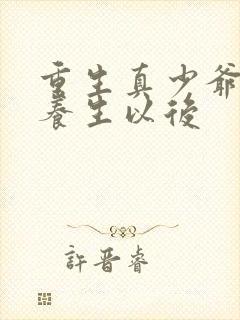 重生真少爺
養生以後
許晋睿